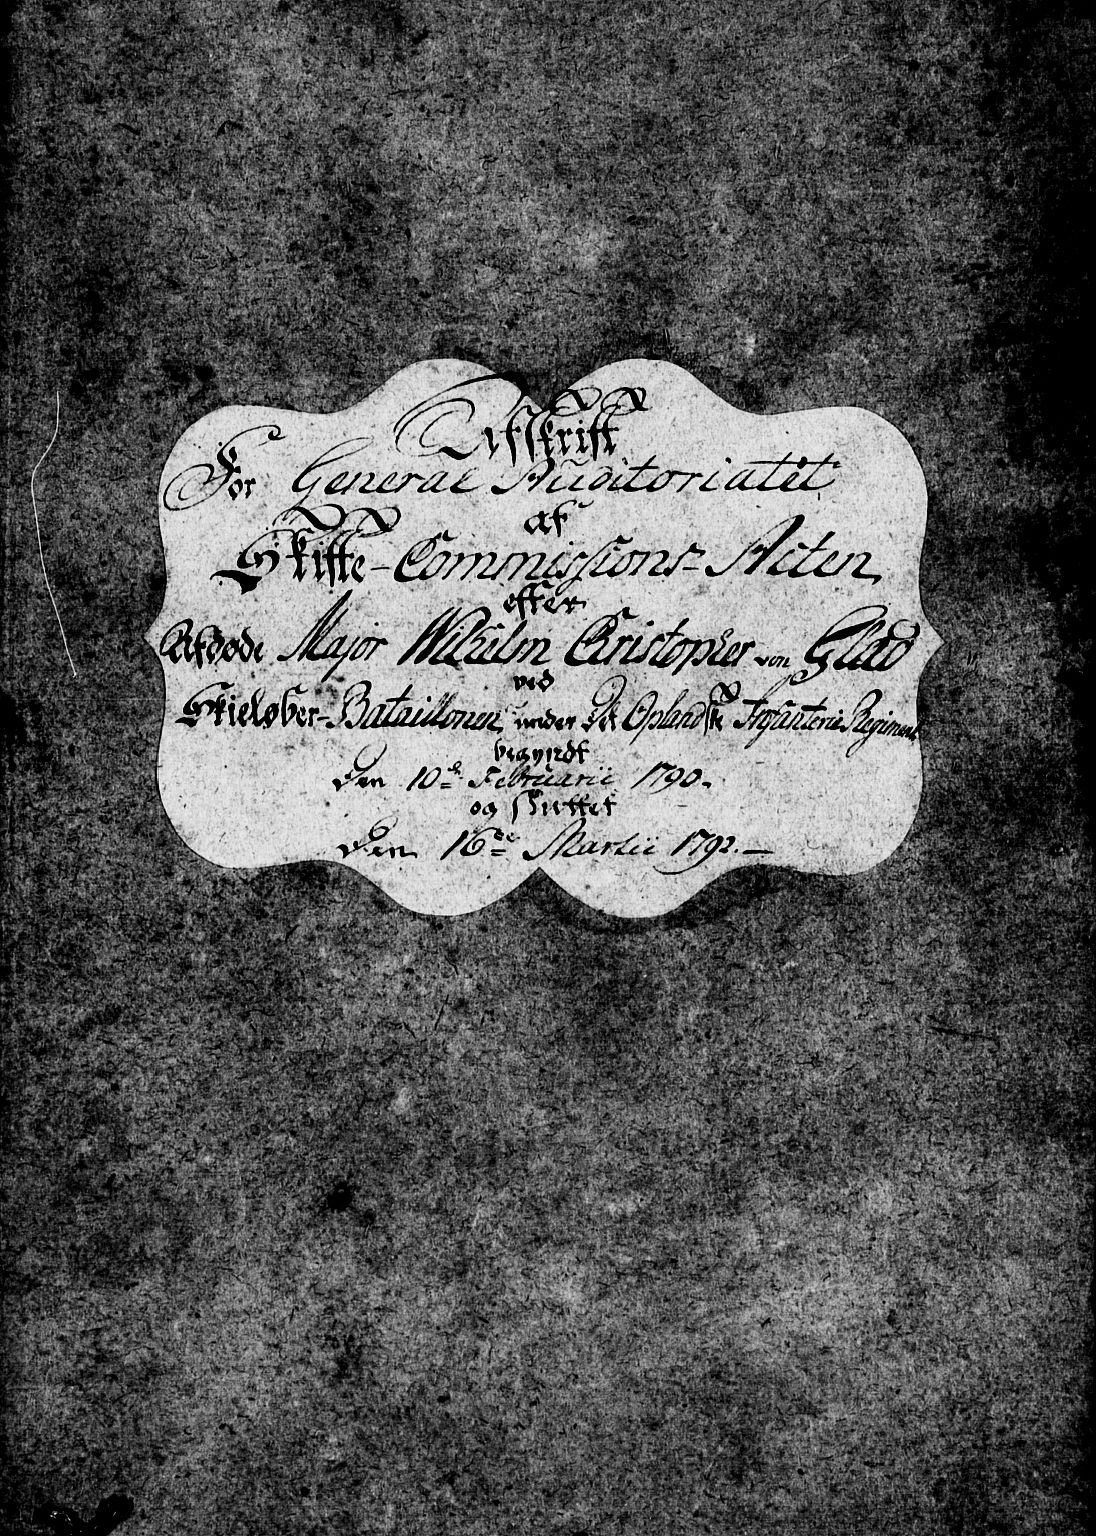 Afskrift
For General Auditoriatet
af
Skifte-Commissions-Acten
efter
Afdøde Major Wilhelm Christopher von Glad
ved
Skieløber-Bataillonen under Det Oplandske Infanterie Regiment
begyndt
Den 10de Februarii 1790.
og sluttet
Den 16de Martii 1792.—